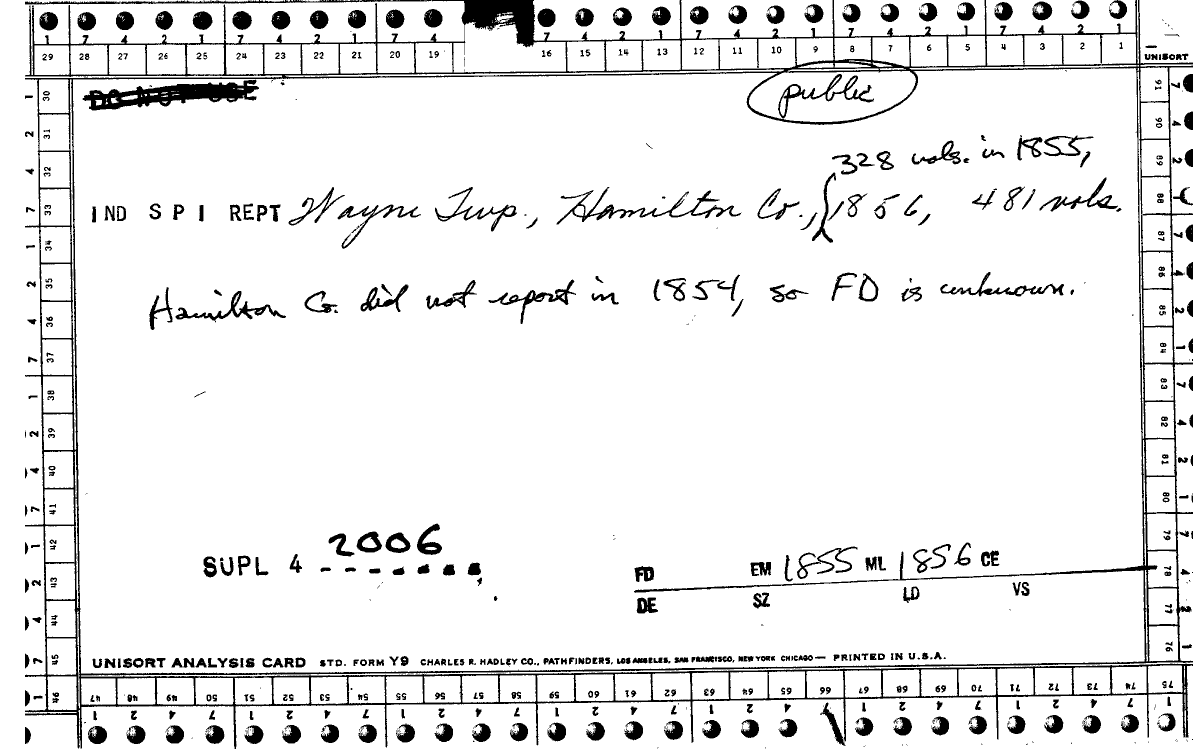 7 4 2 1 7 4 2 1 7 4 7 4 2 1 7 4 2 1 7 4 2 1 7 4 2 1
29 28 27 26 25 24 23 22 21 20 19 16 15 14 13 12 11 10 9 8 7 6 5 4 3 2 1
UNISORT
DO NOT USE
public
328 vols. in 1855,
IND S P I REPT Wayne Twp., Hamilton Co., 1856, 481 vols.
Hamilton Co. did not report in 1854, so FD is unknown.
2006
SUPL 4
FD EM 1855 ML 1856 CE
DE SZ LD VS
UNISORT ANALYSIS CARD STD. FORM Y9 CHARLES R. HADLEY CO., PATHFINDERS, LOS ANGELES, SAN FRANCISCO, NEW YORK CHICAGO — PRINTED IN U.S.A.
30 31 32 33 34 35 36 37 38 39 40 41 42 43 44 45 46
47 48 49 50 51 52 53 54 55 56 57 58 59 60 61 62 63 64 65 66 67 68 69 70 71 72 73 74 75
76 77 78 79 80 81 82 83 84 85 86 87 88 89 90 91